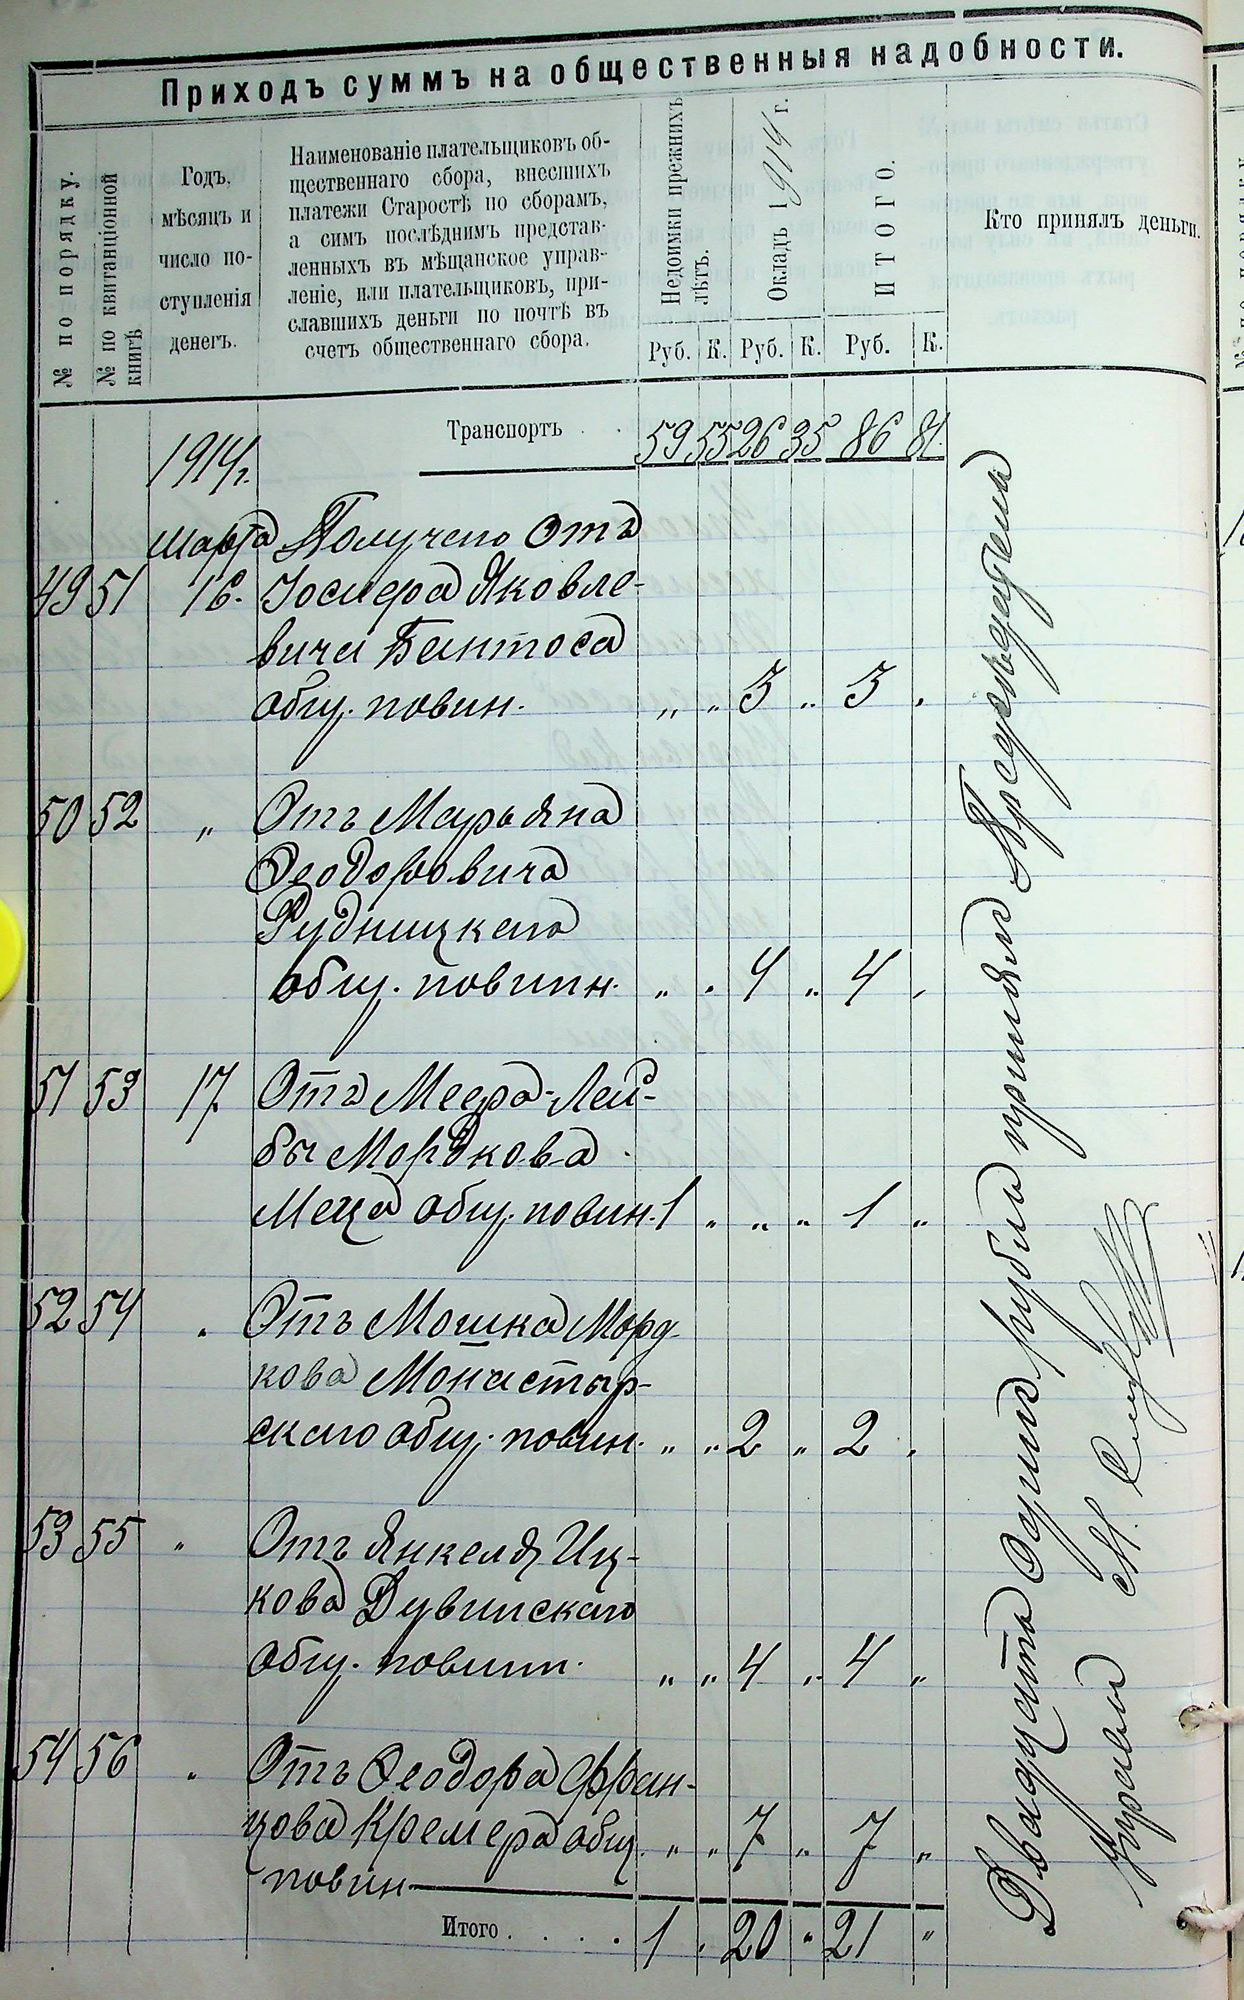 Приходъ суммъ на общественныя надобности.
№ по порядку.
№ по квитанціонной книгѣ
Годъ,
мѣсяцъ и
число по-
ступленія
денегъ.
Наименованіе плательщиковъ об-
щественнаго сбора, внесшихъ
платежи Старостѣ по сборамъ,
а симъ послѣднимъ представ-
ленныхъ въ мѣщанское управ-
леніе, или плательщиковъ, при-
славшихъ деньги по почтѣ въ
счетъ общественнаго сбора.
Недоимки прежнихъ
лѣтъ.
Окладъ 1914 г.
ИТОГО.
Кто принялъ деньги.
Руб. К. Руб. К. Руб. К.
Транспортъ . . 59 55 26 35 86 81.
1914 г.
Марта Получено Отъ
49 51 16. Іосифа Яковле-
вича Бантоса
общ. повин. „ „ 3 „ 3 „
50 52 „ Отъ Марьяна
Ѳеодоровича
Рудницкаго
общ. повинн. „ „ 4 „ 4 „
51 53 17 Отъ Меера-Лей-
бы Мордкова
Меца общ. повин. 1 „ „ „ 1 „
52 54 „ Отъ Мошка Морд-
кова Монастыр-
скаго общ. повин. „ „ 2 „ 2 „
53 55 „ Отъ Янкеля Иц-
кова Дувинскаго
общ. повин. „ „ 4 „ 4 „
54 56 „ Отъ Ѳеодора Фран-
цова Кремера общ. „ „ 7 „ 7 „
повин
Итого . . . . 1 „ 20 „ 21 „
Двадцать Одинъ рубль принялъ Предсѣдатель
Управы М.